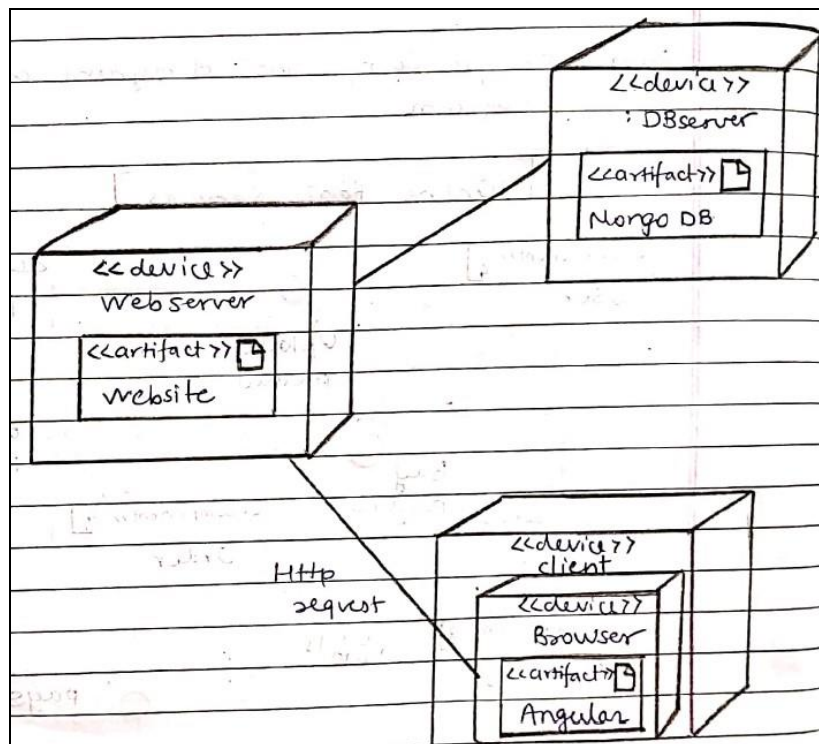 <<device>>
: DBserver
<<artifact>>
Mongo DB
<<device>>
Webserver
<<artifact>>
Website
Http
request
<<device>>
client
<<device>>
Browser
<<artifact>>
Angular